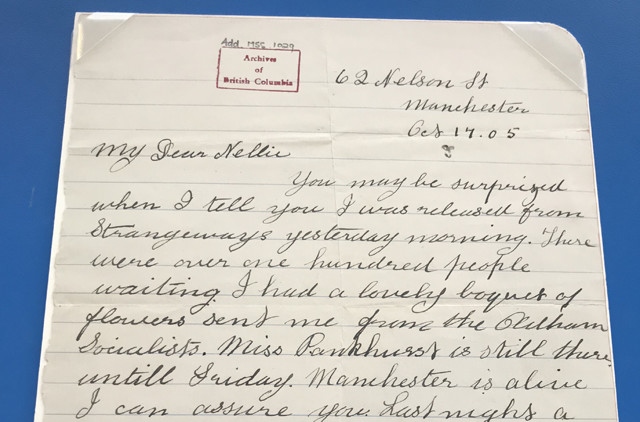 Add. MSS 1029
Archives
of
British Columbia
62 Nelson St
Manchester
Oct 17.05
My Dear Nellie
You may be surprized
when I tell you I was released from
Strangeways yesterday morning. There
were over one hundred people
waiting. I had a lovely boquet of
flowers sent me from the Oldham
Socialists. Miss Pankhurst is still there
untill Friday. Manchester is alive
I can assure you. Last night a